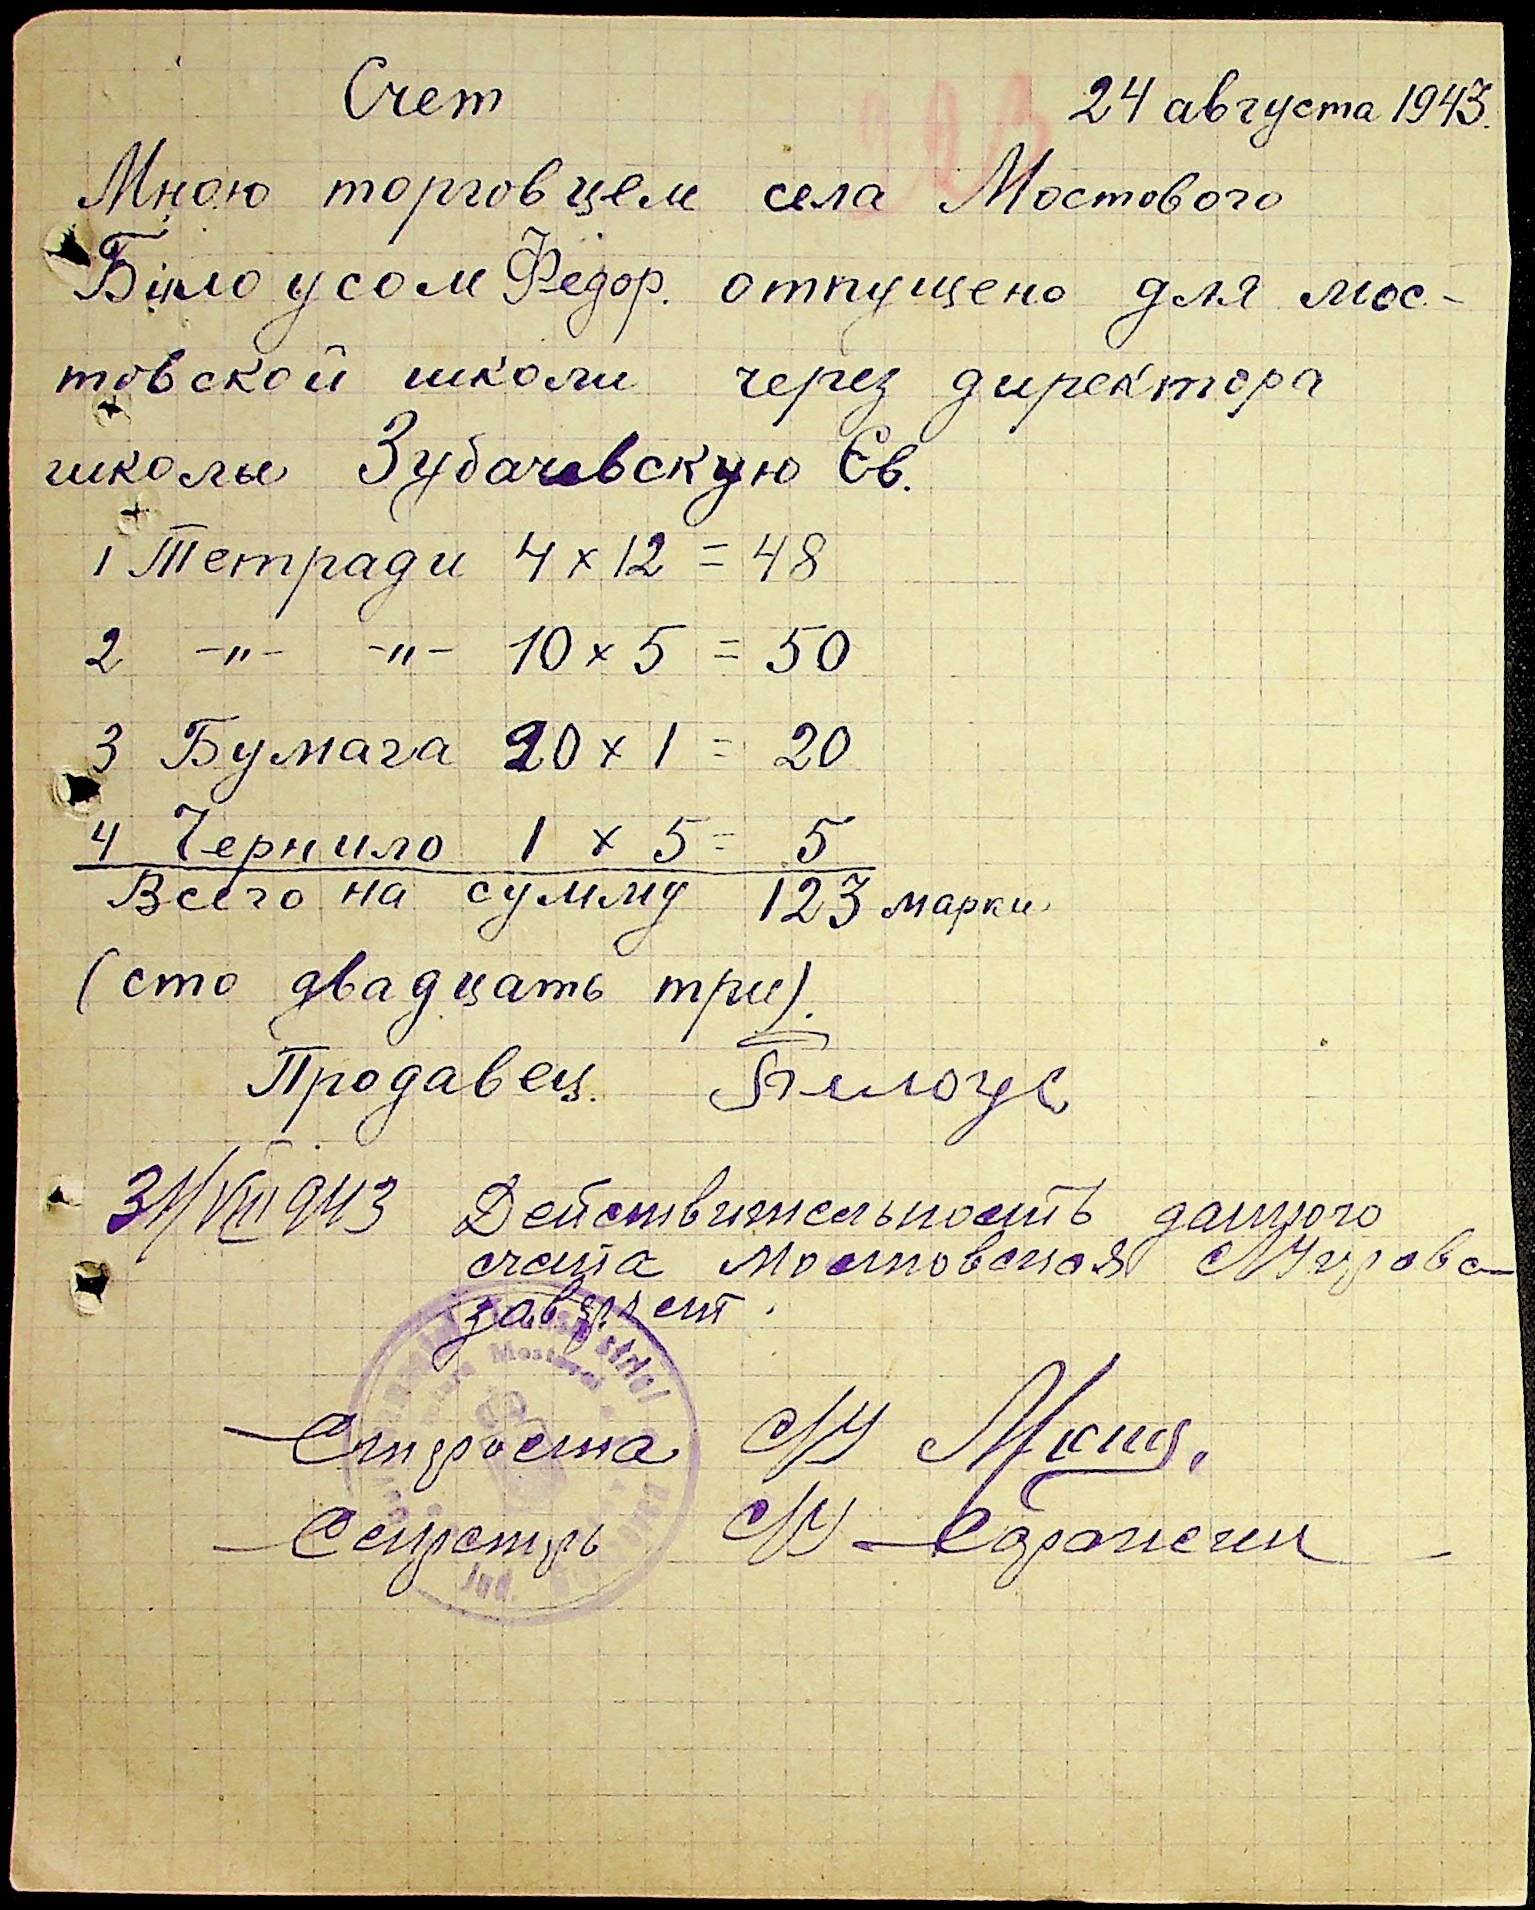 Счет 24 августа 1943.
Мною торговцем села Мостового
Білоусом Федор. отпущено для мос-
товской школи через директора
школы Зубачевскую Єв.
1 Тетради 4 × 12 = 48
2 -"- -"- 10 × 5 = 50
3 Бумага 20 × 1 = 20
4 Чернило 1 × 5 = 5
Всего на сумму 123 марки
(сто двадцать три).
Продавец. Білоус
31/VIII 943 Действительность данного
счета Мостовская С/Управа
завѣряет.
Староста С/У
Секретарь С/У
Jud.